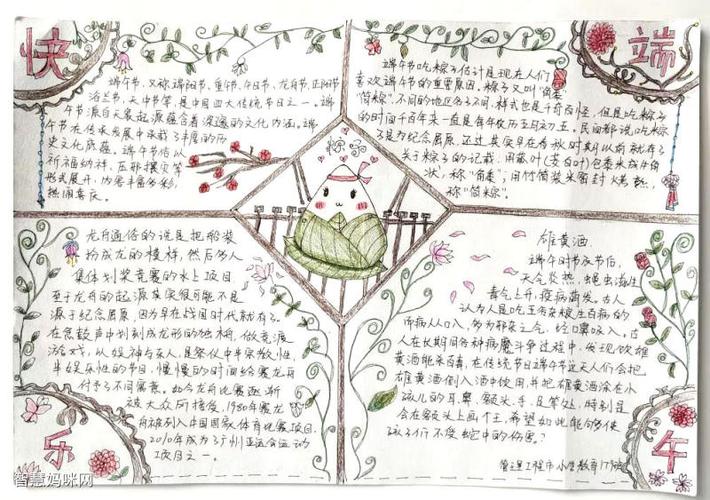 快
端午节，又称端阳节、重午节、午日节、龙舟节、正阳节
浴兰节、天中节等，是中国四大传统节日之一。端
午节源自天象起源蕴含着深邃的文化内涵。端
午节在传承发展中承载了丰厚的历
史文化底蕴。端午节俗以
祈福纳祥、压邪攘灾等
形式展开，内容丰富多彩，
热闹喜庆。
端
端午节吃粽子估计是现在人们
喜欢端午节的重要原因，粽子又叫"角黍"
"筒粽"，不同的地区各不同，样式也是千奇百怪，但是吃粽子
的时间千百年来一直是每年农历五月初五，民间都说吃粽
子是为纪念屈原，不过其实早在春秋时期以前就有了
关于粽子的记载，用菰叶（茭白叶）包黍米成牛角
状，称"角黍"；用竹筒装米密封烤熟，
称"筒粽"。
粽子
龙舟通俗的说是把船装
扮成龙的模样，然后多人
集体划桨竞赛的水上项目
至于龙舟的起源其实很可能不是
源于纪念屈原，因为早在战国时代就有了。
在急鼓声中划刻成龙形的独木舟，做竞渡
游戏，以娱神与乐人，是祭仪中半宗教性，
半娱乐性的节目，慢慢的时间给赛龙舟
付予了不同寓意。如今龙舟比赛逐渐
被大众所接受，1980年赛龙
舟被列入中国国家体育比赛项目
2010年成为了广州亚运会运动
项目之一。
乐
雄黄酒
端午时节及节后，
天气炎热，蝇虫滋生
毒气上升，疫病萌发。古人
认为人是吃五谷杂粮生百病的
而病从人口入，多为邪杂之气，经口鼻吸入，古
人在长期同各种病魔斗争过程中，发现饮雄
黄酒能杀百毒，在传统节日端午节这天人们会把
雄黄酒倒入酒中使用，并把雄黄酒涂在小
孩儿的耳、鼻、额头、手、足等处，特别是
会在额头上画个王，希望如此能够使
孩子们不受蛇虫的伤害。
午
智慧妈咪网